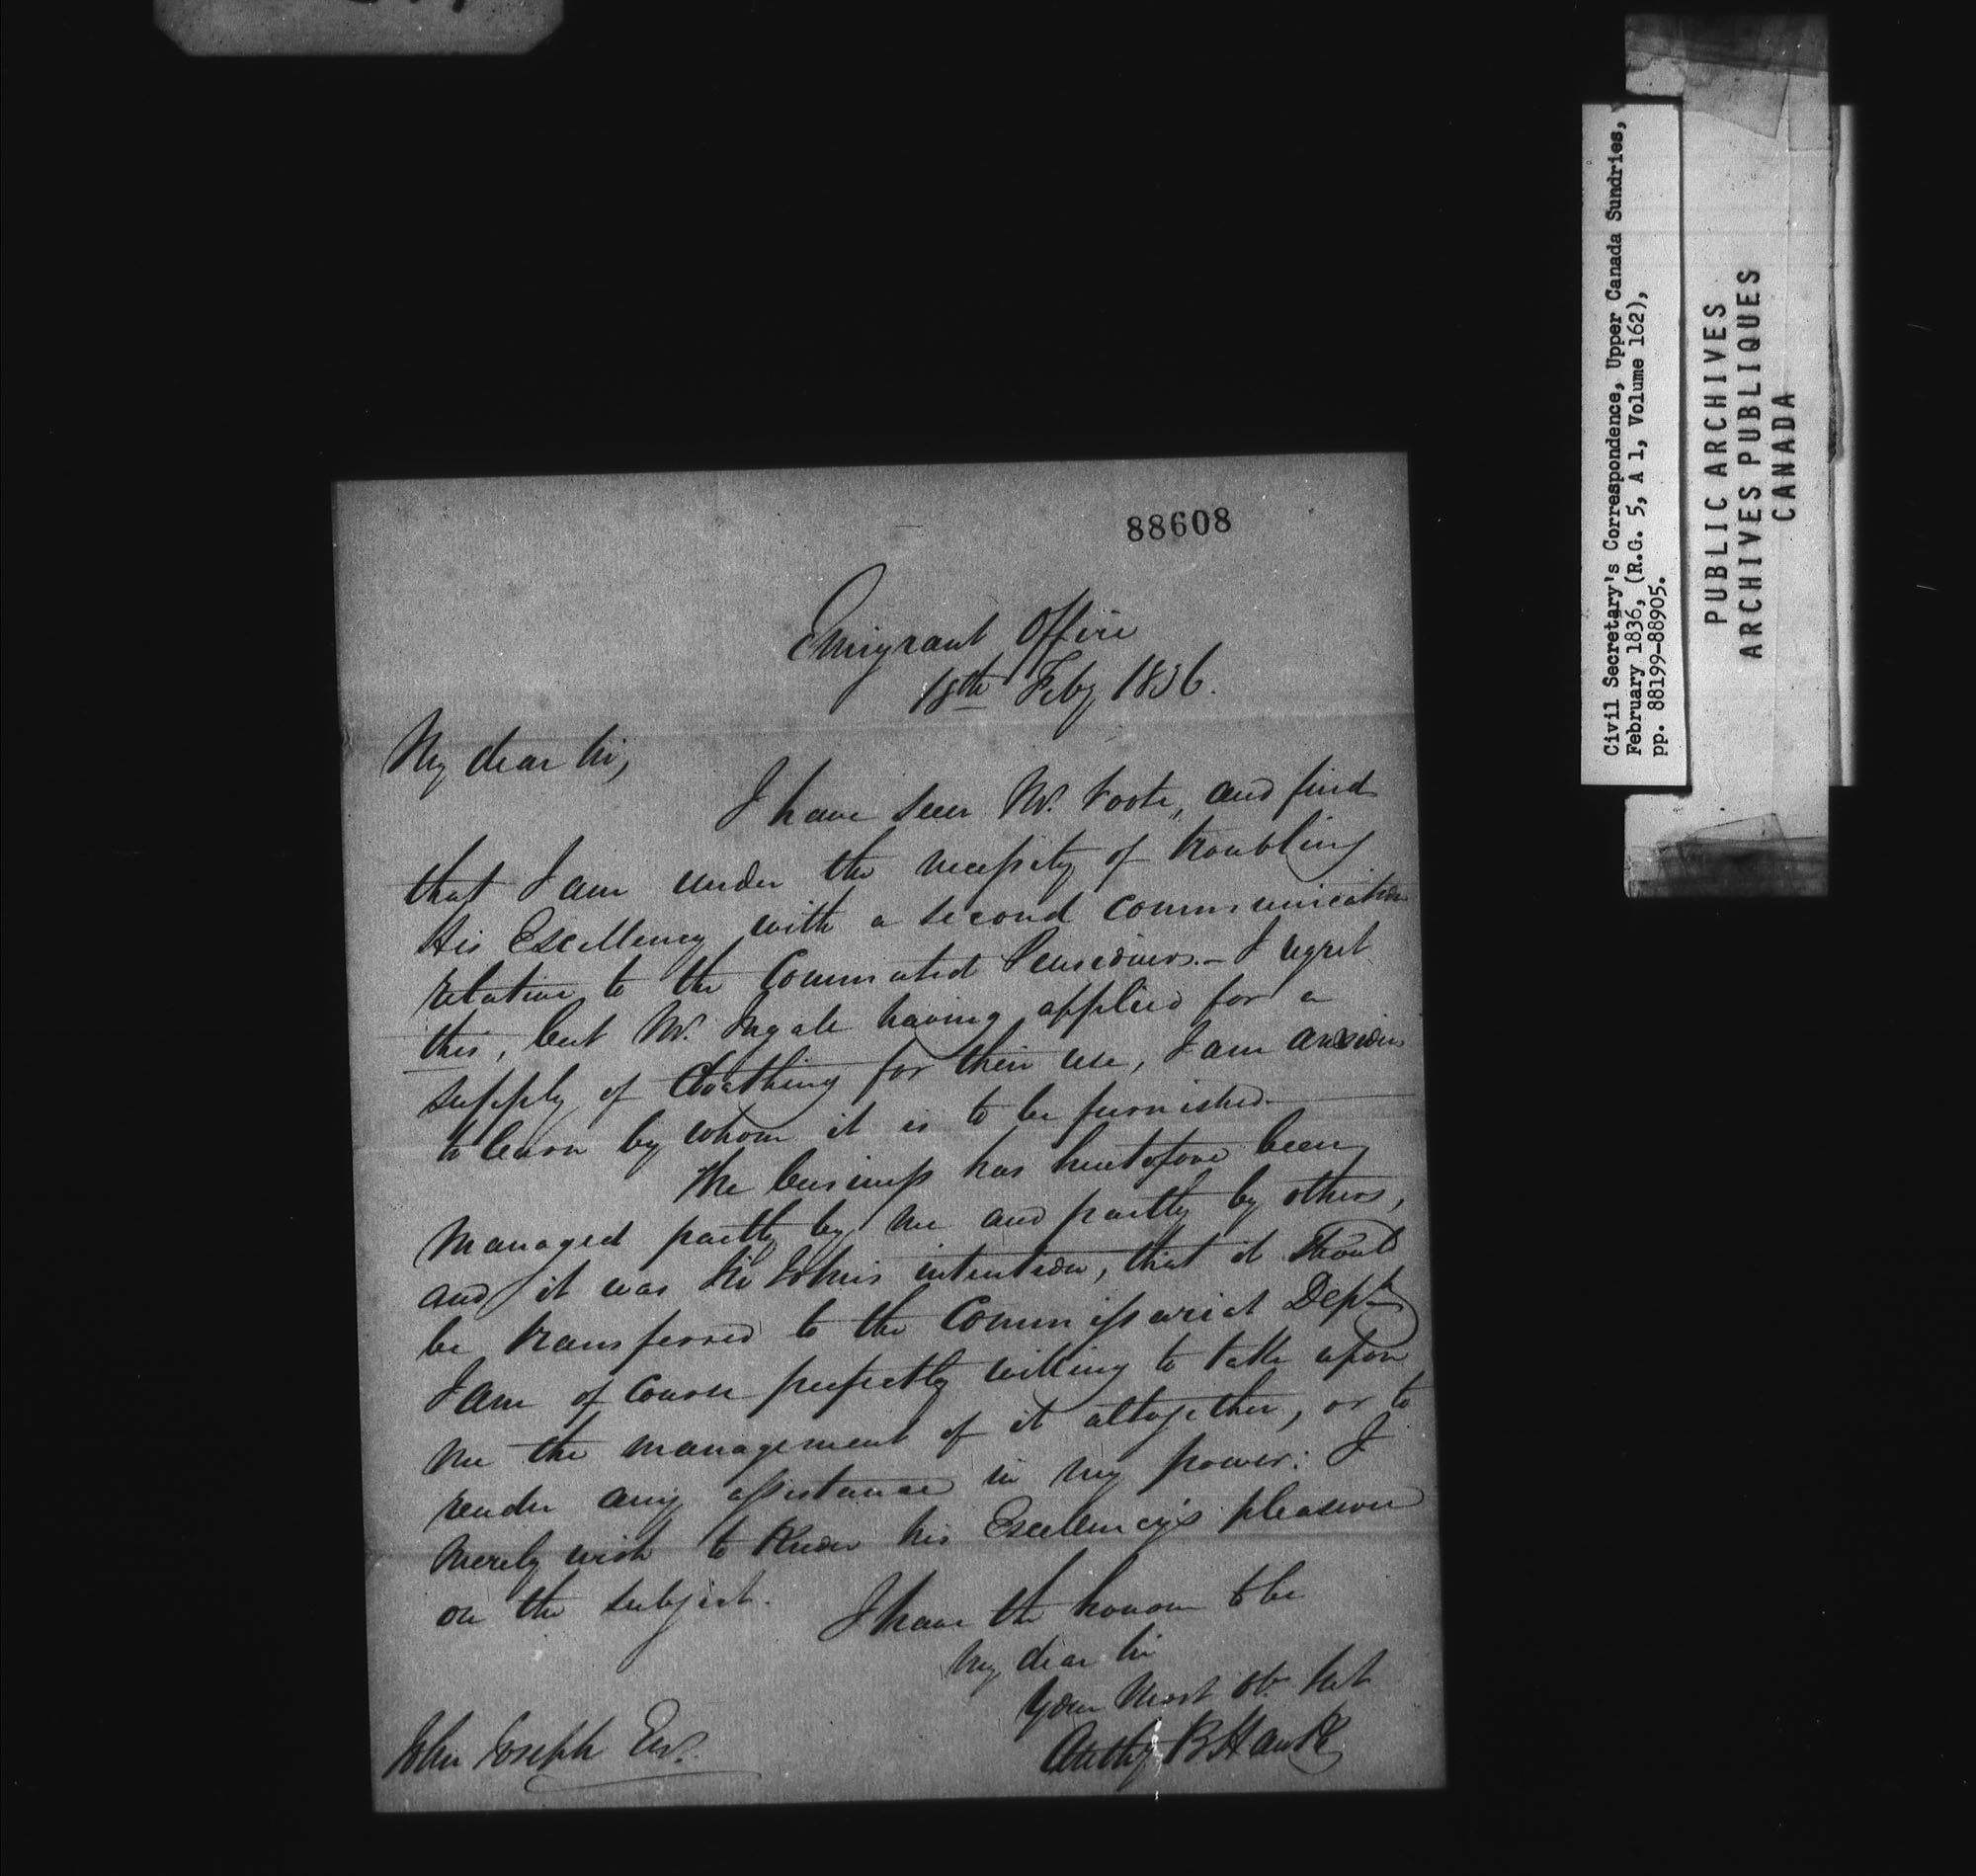 88608
Emigrant Office
18th Feby 1836.
My dear Sir,
I have seen Mr. Foote, and find
that I am under the necessity of troubling
His Excellency with a second communication
relative to the Commuted Pensioners. - I regret
this, but Mr. Ingall having applied for a
supply of Cloathing for their use, I am anxious
to learn by whom it is to be furnished.
The business has heretofore been
managed partly by me and partly by others,
and it was Sir John's intention, that it should
be transferred to the Commissariat Dept.
I am of course perfectly willing to take upon
me the management of it altogether, or to
render any assistance in my power: I
merely wish to know his Excellency's pleasure
on the subject.
I have the honour to be
My dear Sir
Your Most Ob. Sert
Anthy B Hawke
John Joseph Esq.
Civil Secretary's Correspondence, Upper Canada Sundries,
February 1836, (R.G. 5, A 1, Volume 162),
pp. 88199-88905.
PUBLIC ARCHIVES
ARCHIVES PUBLIQUES
CANADA